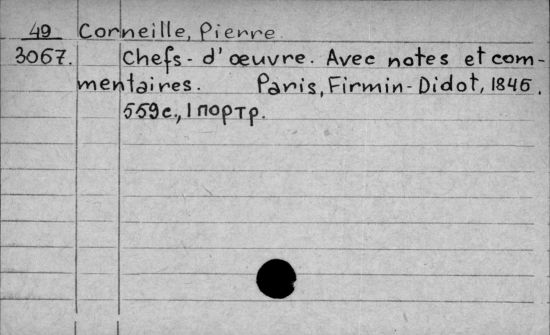 49 Corneille, Pierre
3067. Chefs-d'œuvre. Avec notes et com-
mentaires. Paris, Firmin-Didot, 1846.
559 с., 1 портр.